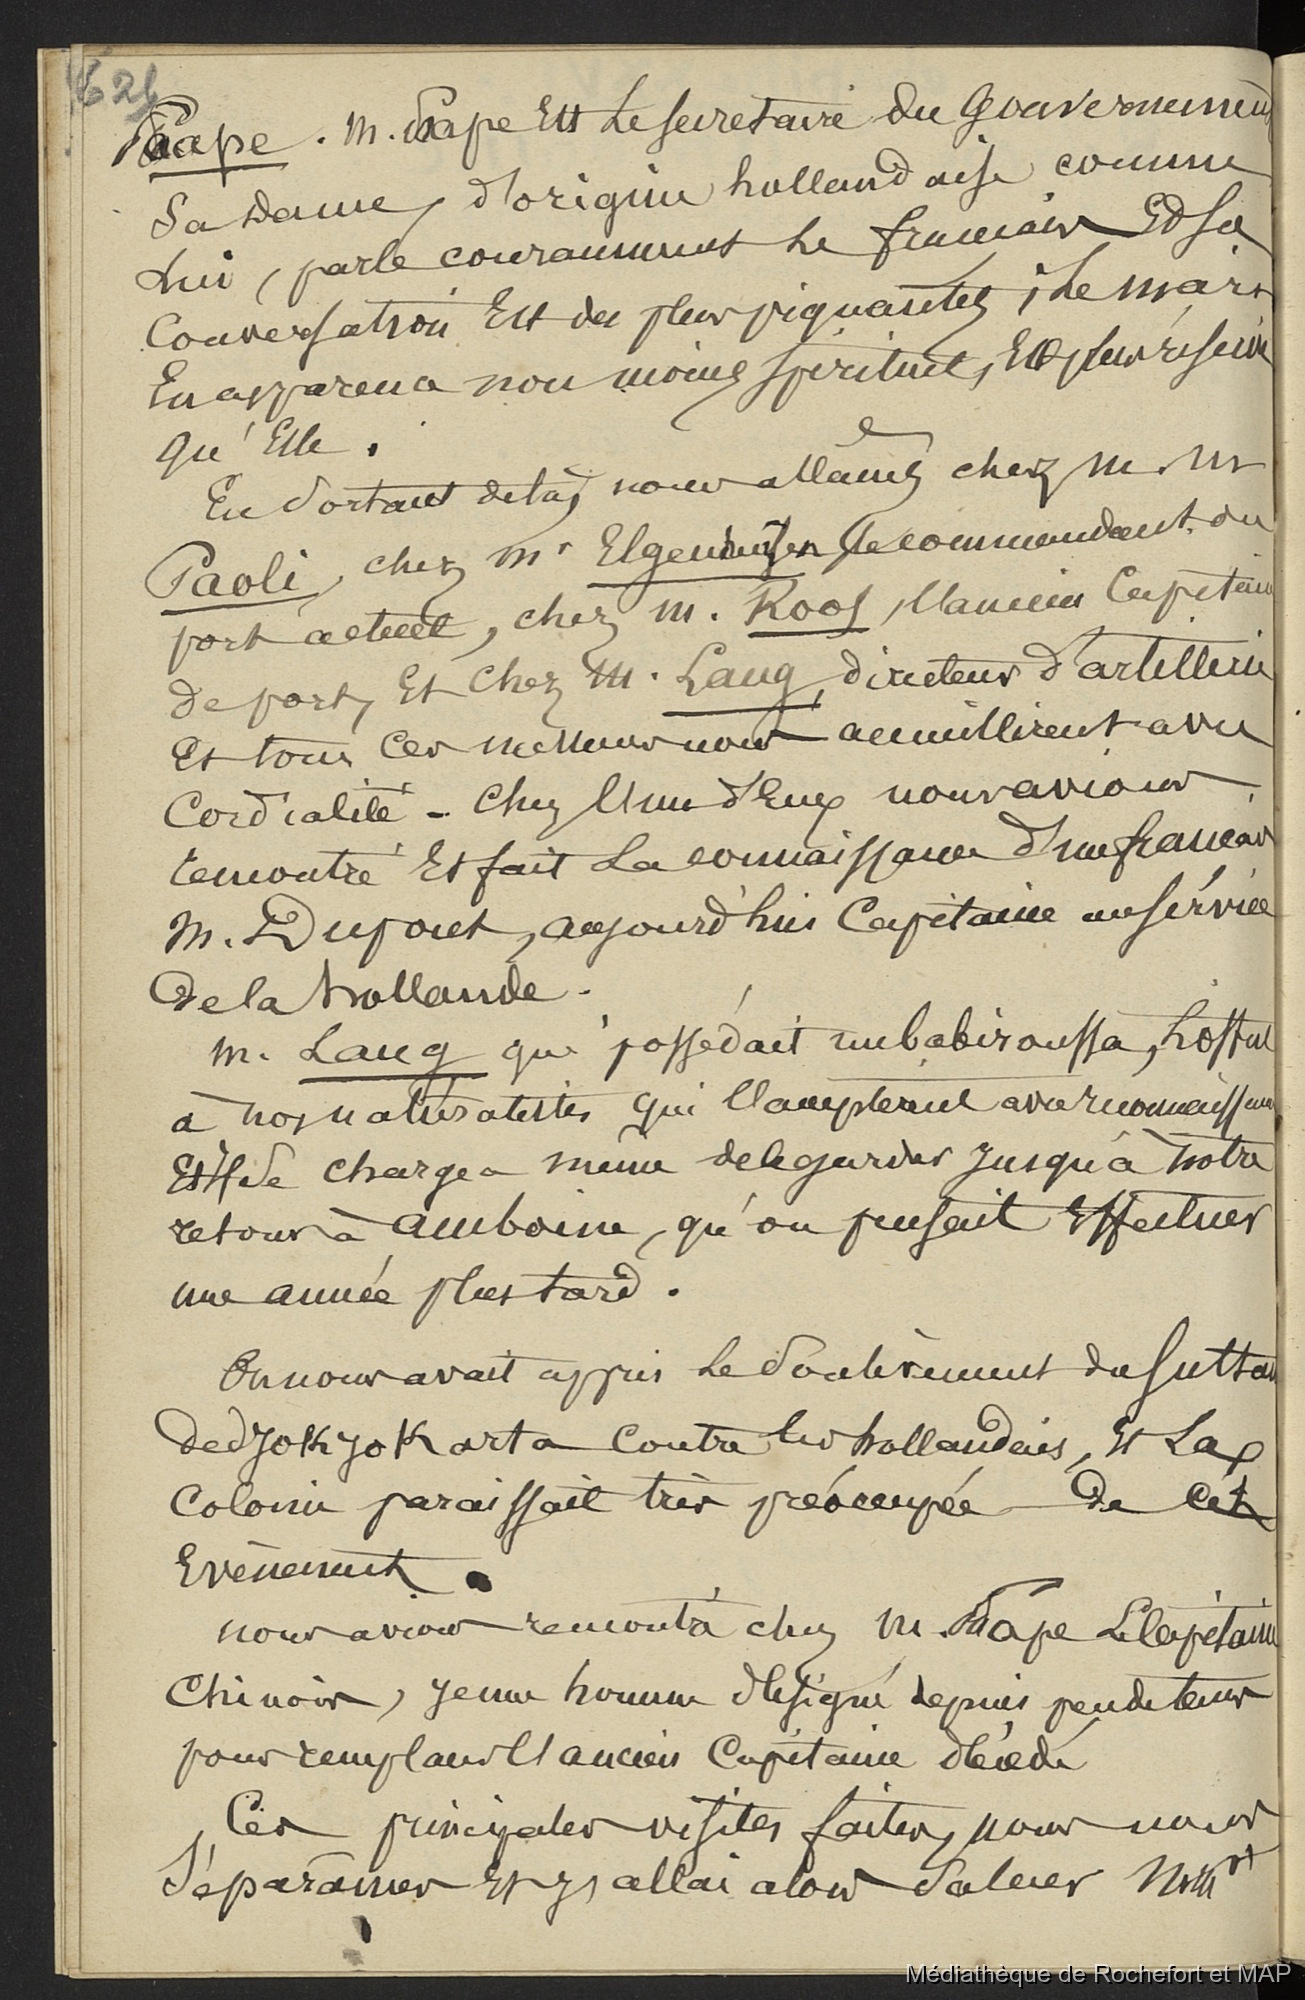 Paape. m. Paape Est le secretaire du Gouvernement
Sa dame, d'origine hollandaise comme
lui, parle couramment le francais Et sa
Conversation Est des plus piquantes ; le mari
En apparence non moins spirituel, Est plus réservé
qu'Elle.
En sortant delà, nous allâmes chez m. m
Paoli, chez mr le commandant du
port actuel, chez m. Roos, l'ancien Capitaine
de port, Et chez m. Lang, directeur d'artillerie
Et tous ces messieurs nous accueillirent avec
Cordialité - Chez l'un d'Eux nous avions
rencontré Et fait la connaissance d'un francais
m. Dupont, aujourd'hui Capitaine au service
de la hollande.
m. Lang qui possédait un babiroussa, l'offrit
à nos naturalistes qui l'acceptèrent avec reconnaissance
Et il se chargea même de le garder jusqu'à notre
retour à amboine, qu'on pensait Effectuer
une année plus tard.
On nous avait appris le soulèvement du sultan
de djokjokarta contre les hollandais, Et la
Colonie paraissait très préoccupée de cet
Evènement.
nous avions rencontré chez m. Paape le Capitaine
Chinois, jeune homme désigné depuis peu de tems
pour remplacer l'ancien Capitaine décédé
Ces principales visites faites, nous nous
séparâmes Et j'allai alors saluer
Médiathèque de Rochefort et MAP